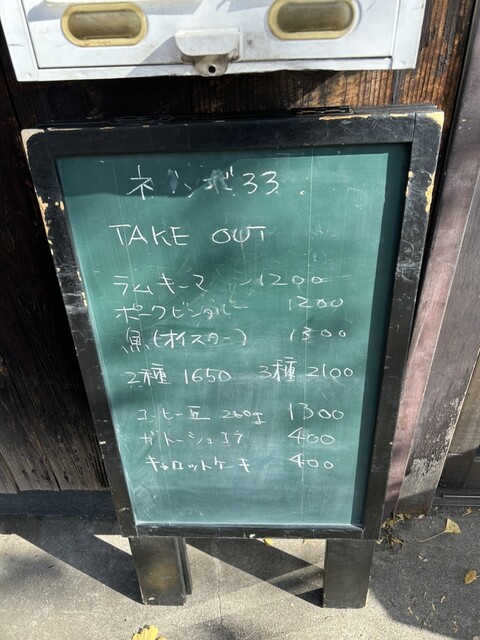 ネンボ33
TAKE OUT
ラムキーマ 1200
ポークビンダルー 1200
魚(オイスター) 1300
2種 1650 3種 2100
コーヒー豆 200g 1300
ガトーショコラ 400
キャロットケーキ 400